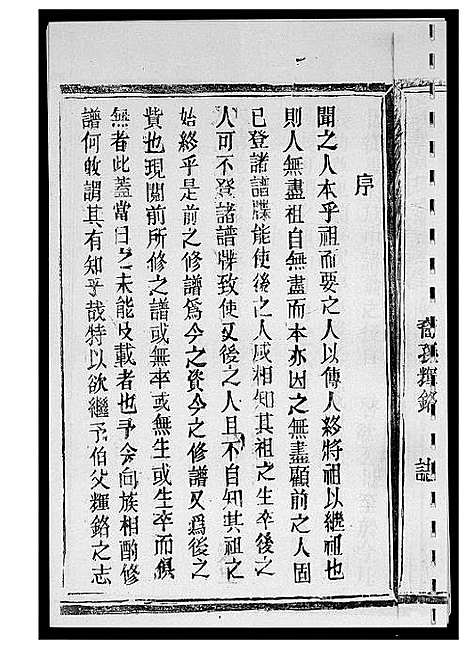 裔孫輝鉻 誌
序
聞之人本乎祖而要之人以傳人終將祖以繼祖也
則人無盡祖自無盡而本亦因之無盡顧前之人固
已登諸譜牒能使後之人咸相知其祖之生卒後之
人可不登諸譜牒致使又後之人且不自知其祖之
始終乎是前之修譜爲今之資今之修譜又爲後之
貲也現閱前所修之譜或無卒或無生或生卒而俱
無者此蓋當日之未能及載者也予今向族相酌修
譜何敢謂其有知乎哉特以欲繼予伯父輝鉻之志